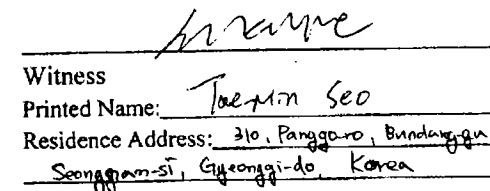 Witness
Printed Name: Taemin Seo
Residence Address: 310, Panggyo-ro, Bundang-gu
Seongnam-si, Gyeonggi-do, Korea